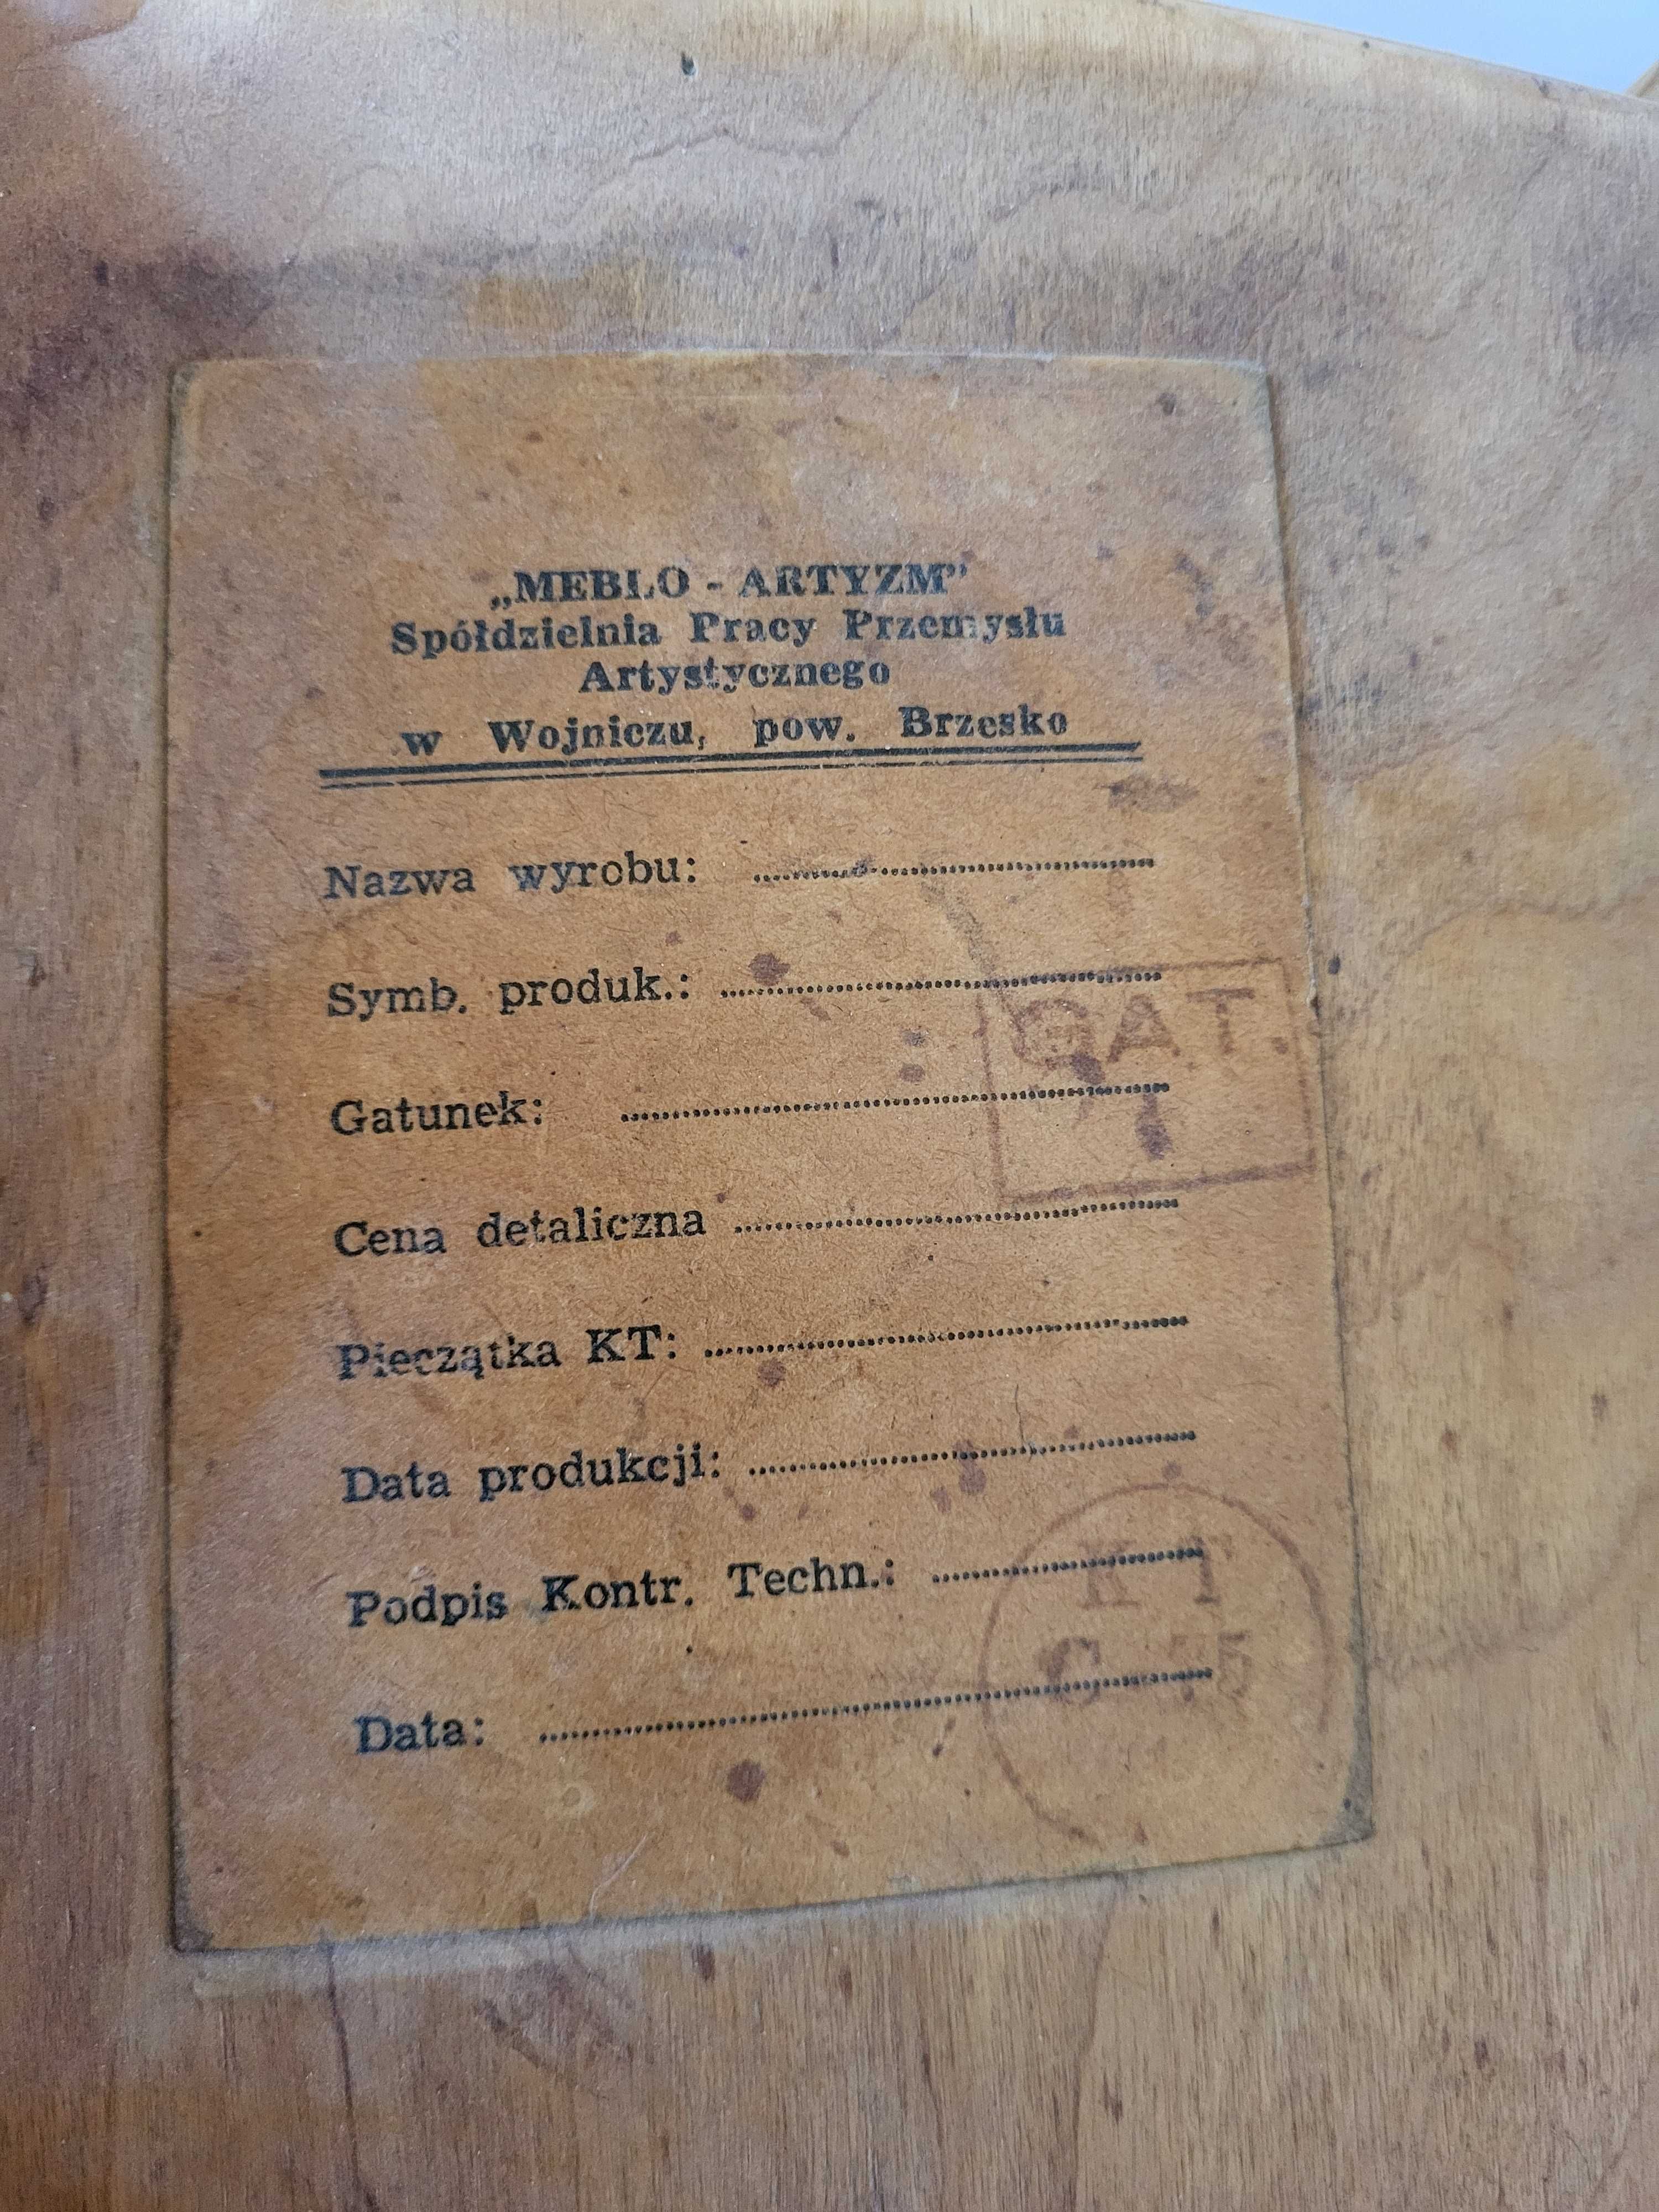 „MEBLO - ARTYZM”
Spółdzielnia Pracy Przemysłu
Artystycznego
w Wojniczu, pow. Brzesko
Nazwa wyrobu: ........................................
Symb. produk.: ........................................
GAT.
Gatunek: ........................................
Cena detaliczna ........................................
Pieczątka KT: ........................................
Data produkcji: ........................................
Podpis Kontr. Techn.: ........................................
KT
Data: ........................................